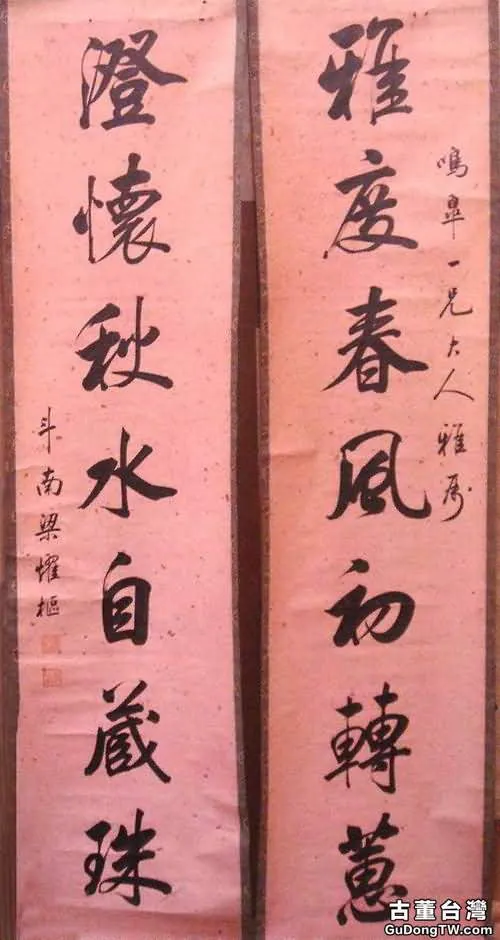 鳴皋一兄大人雅屬
雅度春風初轉蕙
澄懷秋水自藏珠
斗南梁燿樞
古董台灣
GuDongTW.com